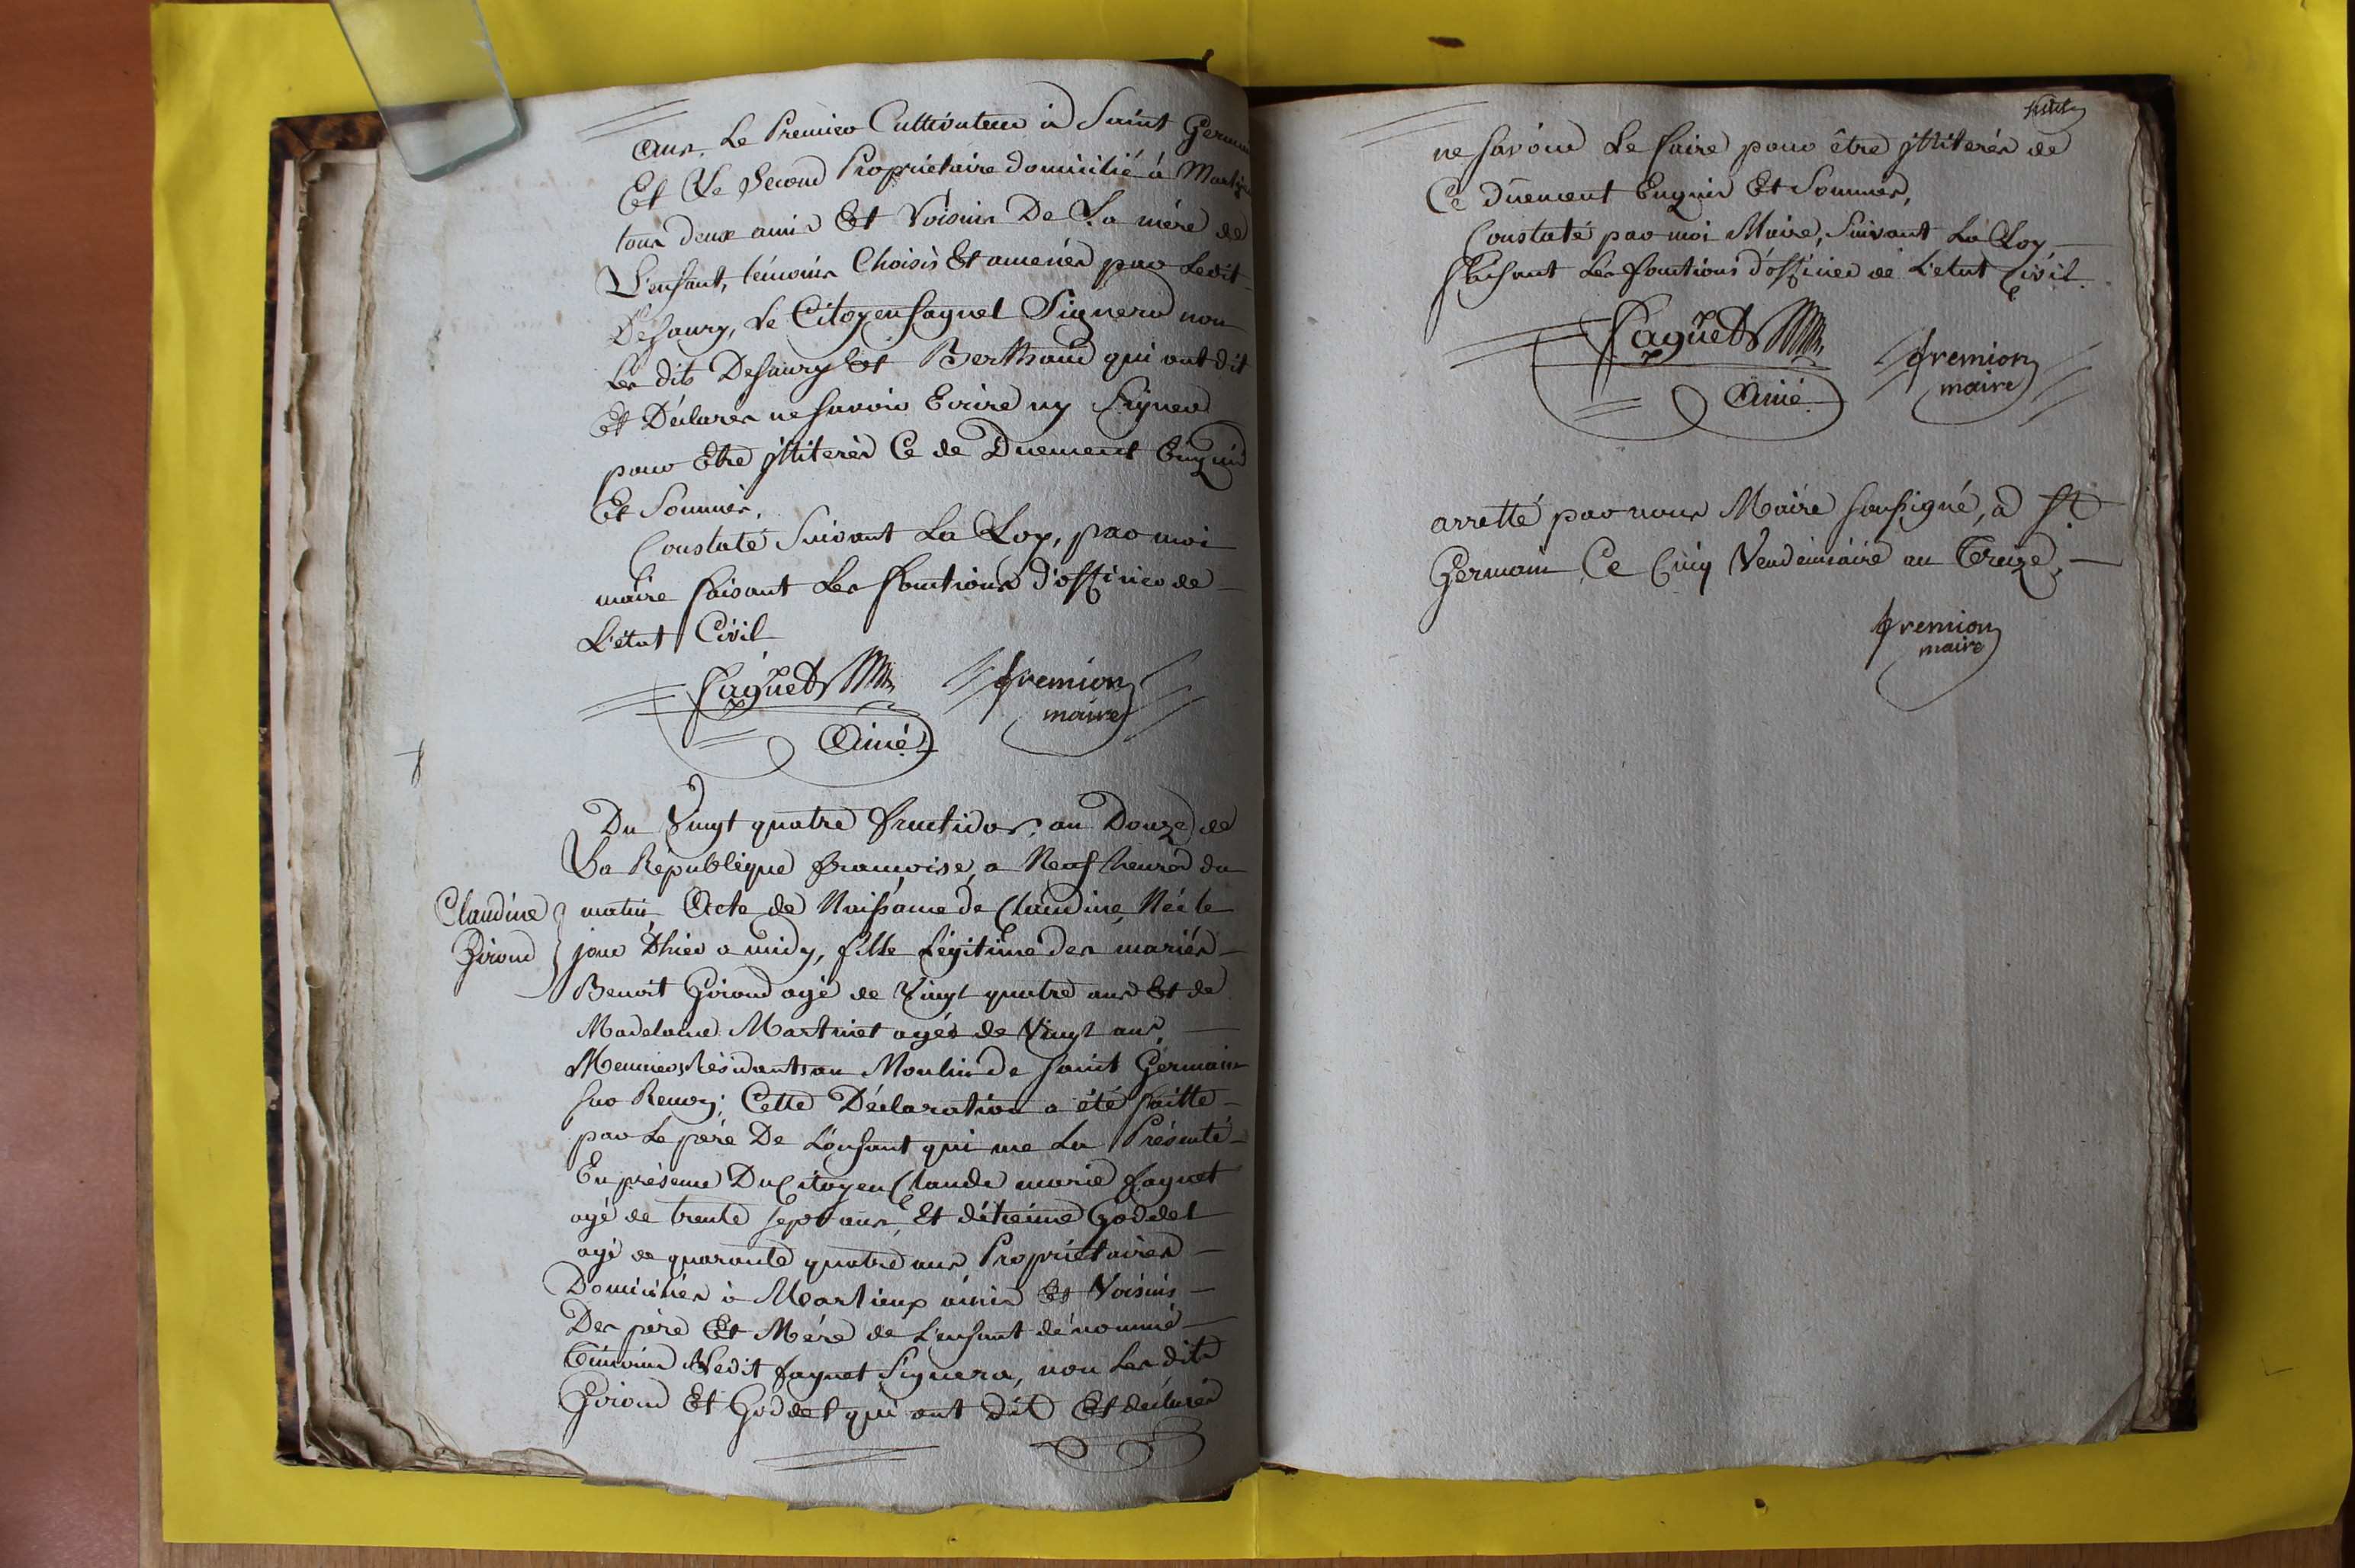 ans, Le Premier Cultivateur à Saint Germain
Et Le Second Propriétaire domicilié à
tous deux amis Et Voisins De La mère de
L'enfant, témoins Choisis Et amenés par Ledit
Desaury, Le Citoyen faguet Signera non
Les dits Desaury Et Berthaud qui ont dit
Et Déclarés ne savoir Ecrire ny Signer
pour Etre jlliterés Ce de Duement Enquis
Et Sommés,
Constaté Suivant La Loy, par moi
maire faisant Les fonctions d'officier de
L'état Civil
faguet fremion
Ainé maire
Du Vingt quatre fructidor, an Douze de
La République françoise, a Neuf heures du
Claudine
Giroud
matin, Acte de Naissance de Claudine, Née le
jour D'hier a midy, fille Légitime des mariés
Benoit Giroud agé de Vingt quatre ans Et de
Madelaine Martinet agés de Vingt ans,
Meuniers Résidants au Moulin de Saint Germain
sur Renon; Cette Déclaration a été faitte
par Le père De L'enfant qui me La Présenté
En présence Du Citoyen Claude marie faguet
agé de trente sept ans, Et d'étienne Goddet
agé de quarante quatre ans Propriétaires
Domiciliés à amis Et Voisins
Des père Et Mére de L'enfant dénommé
témoins Ledit faguet Signera, non Les dits
Giroud Et Goddet qui ont dit Et déclarés
huit
ne savoir Le faire pour être jlliterés de
Ce Duement Enquis Et Sommés,
Constaté par moi Maire, Suivant La Loy
faisant Les fonctions d'officier de L'etat Civil.
faguet fremion
Ainé maire
arretté par nous Maire soussigné, a St
Germain Ce Cinq Vendemiaire an Treize,
fremion
maire